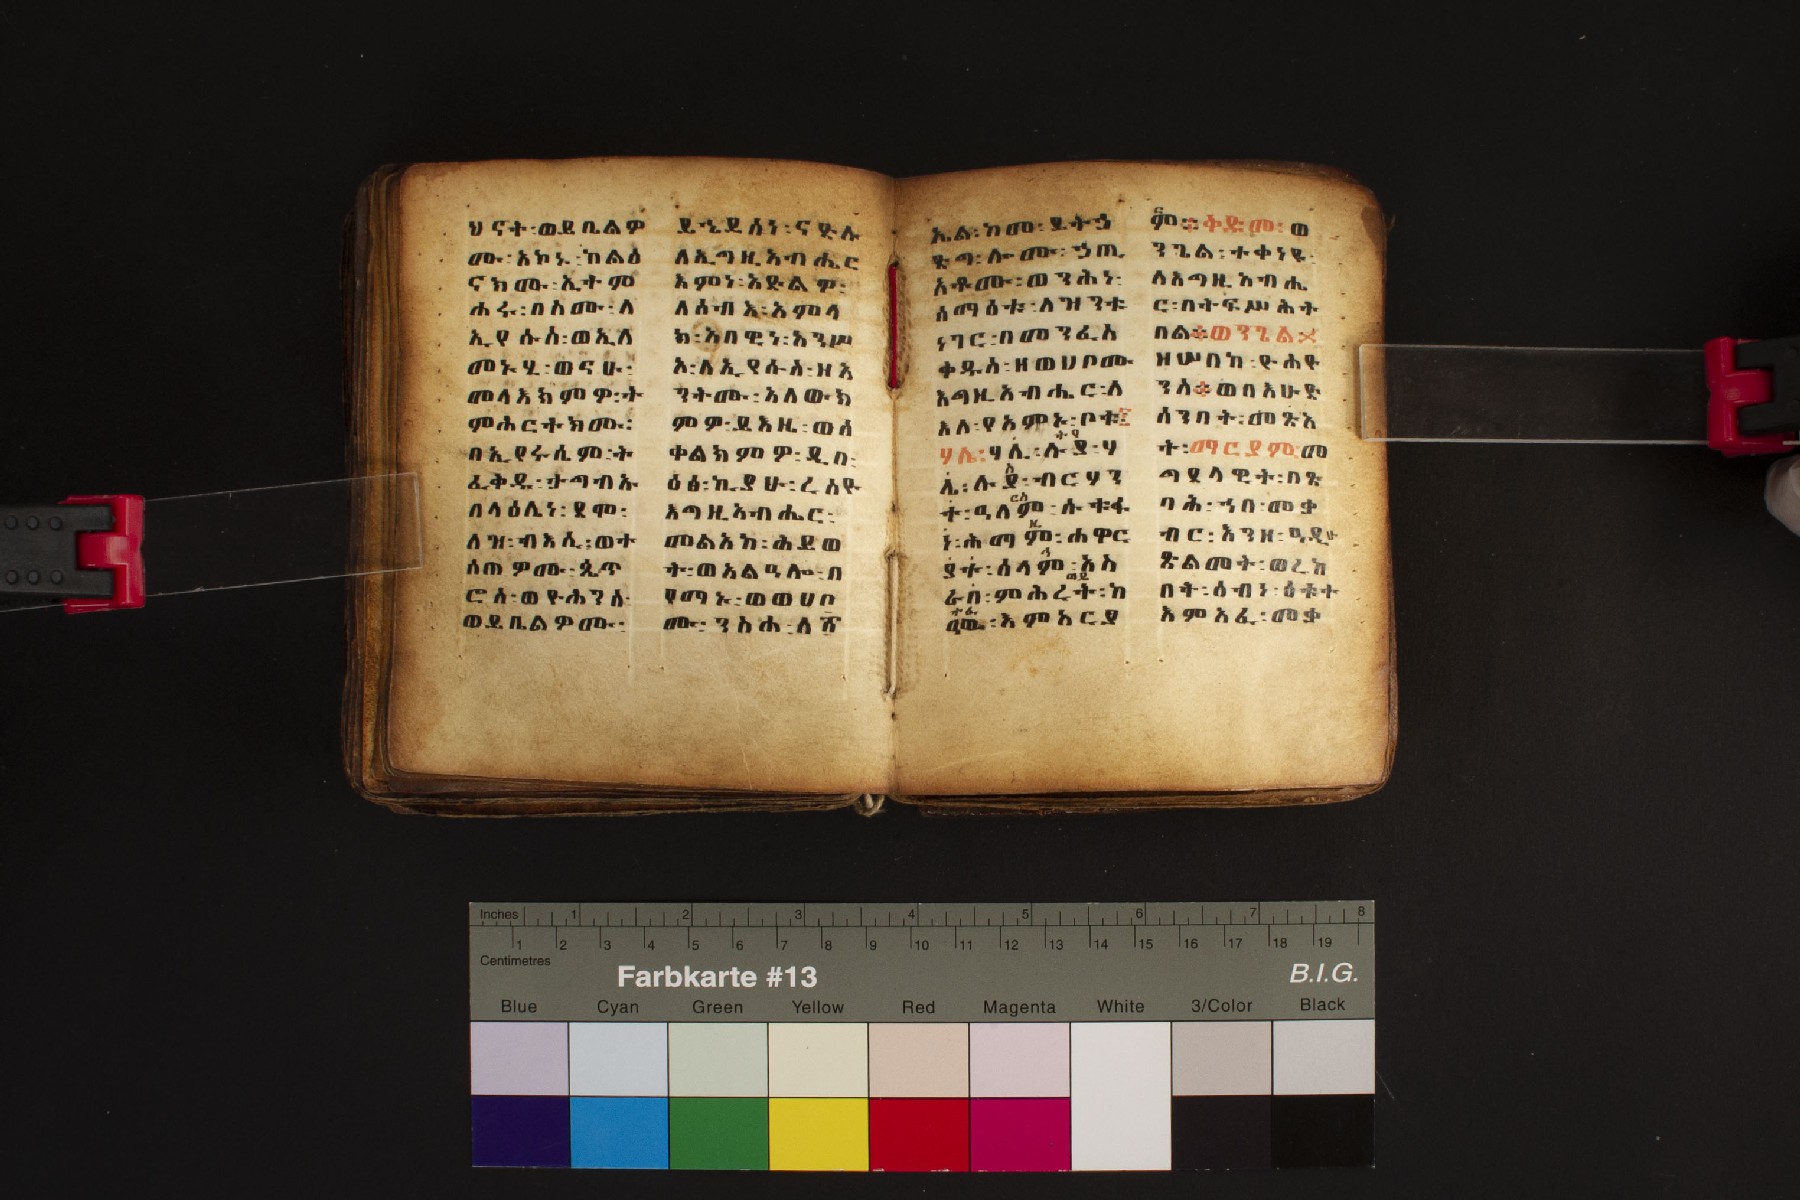 ህናት፡ወይቤልዎ
ሙ፡አኮኑ፡ከልዕ
ናክሙ፡ኢትም
ሐሩ፡በስሙ፡ለ
ኢየሱስ፡ወኢለ
መኑሂ፡ወናሁ፡
መላእክምዎ፡ት
ምሕርተክሙ፡
በኢየሩሲም፡ት
ፈቅዱ፡ታግብኡ
በላዕሌነ፡ደሞ፡
ለዝ፡ብእሲ፡ወተ
ሰጠዎሙ፡ጴጥ
ሮስ፡ወዮሐንስ፡
ወይቤልዎሙ፡
ይኄይሰነ፡ናድሉ
ለእግዚአብሔር
እምነ፡አድልዎ፡
ለሰብእ፡አምላ
ክ፡አበዊነ፡አንሥ
አ፡ለኢየሱስ፡ዘአ
ንትሙ፡አለውክ
ምዎ፡ይእዜ፡ወሰ
ቀልክምዎ፡ዲበ፡
ዕፅ፡ኪያሁ፡ረሰዮ
እግዚአብሔር፡
መልአከ፡ሕይወ
ት፡ወአልዓሎ፡በ
የማኑ፡ወወሀቦ
ሙ፡ንስሐ፡ለሹ
ኤል፡ከመ፡ይትኃ
ደግ፡ሎሙ፡ኃጢ
አቶሙ፡ወንሕነ፡
ሰማዕቱ፡ለዝንቱ
ነገር፡በመንፈስ
ቅዱስ፡ዘወሀቦሙ
እግዚአብሔር፡ለ
እለ፡የአምኑ፡ቦቱ
ሃሌ፡ሃሌ፡ሉያ፡ሃ
ሌ፡ሉያ፡ብርሃን
ት፡ዓለም፡ሱቱፋ
ነ፡ሕማም፡ሐዋር
ያት፡ሰላም፡እስ
ራበ፡ምሕረት፡ከ
እምአርያ
ም፡፡ቅድመ፡ወ
ንጌል፡ተቀነዩ፡
ለእግዚአብሔ
ር፡በትፍሥሕት
በል፡፡ወንጌል፡
ዝሠበከ፡ዮሐዮ
ንስ፡፡ወበእሁድ
ሰንበት፡መጽአ
ት፡ማርያም፡መ
ግደላዊት፡በጽ
ባሕ፡ኀበ፡መቃ
ብር፡እንዘ፡ዓዲሁ
ጽልመት፡ወረከ
በት፡ዕብነ፡ዕቱተ
እምአፈ፡መቃ
Inches 1 2 3 4 5 6 7 8
1 2 3 4 5 6 7 8 9 10 11 12 13 14 15 16 17 18 19
Centimetres
Farbkarte #13
B.I.G.
Blue Cyan Green Yellow Red Magenta White 3/Color Black